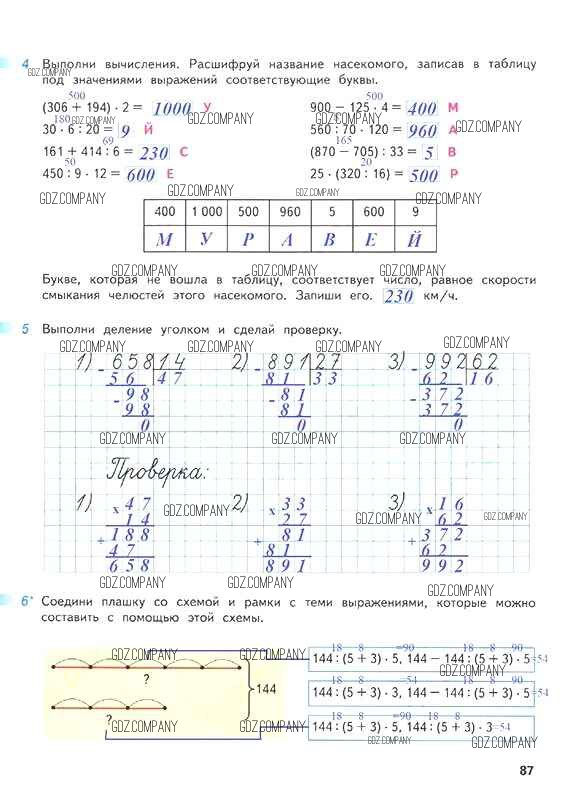 4 Выполни вычисления. Расшифруй название насекомого, записав в таблицу
GDZ.COMPANY
под значениями выражений соответствующие буквы.
500 500
(306 + 194) · 2 = 1000 У 900 − 125 · 4 = 400 М
180 GDZ.COMPANY GDZ.COMPANY GDZ.COMPANY GDZ.COMPANY
30 · 6 : 20 = 9 Й 560 : 70 · 120 = 960 А
69 165
161 + 414 : 6 = 230 С (870 − 705) : 33 = 5 В
50 20
450 : 9 · 12 = 600 Е 25 · (320 : 16) = 500 Р
GDZ.COMPANY GDZ.COMPANY GDZ.COMPANY GDZ.COMPANY
400 1 000 500 960 5 600 9
М У Р А В Е Й
GDZ.COMPANY GDZ.COMPANY GDZ.COMPANY
Букве, которая не вошла в таблицу, соответствует число, равное скорости
смыкания челюстей этого насекомого. Запиши его. 230 км/ч.
5 Выполни деление уголком и сделай проверку.
GDZ.COMPANY GDZ.COMPANY GDZ.COMPANY GDZ.COMPANY
1) - 658 14 2) - 891 27 3) - 992 62
56 47 81 33 62 16
- 98 - 81 - 372
98 81 372
0 0 0
GDZ.COMPANY GDZ.COMPANY GDZ.COMPANY
Проверка:
1) x 47 2) x 33 3) x 16
14 27 62
GDZ.COMPANY GDZ.COMPANY GDZ.COMPANY
+ 188 + 81 + 372
47 81 62
658 891 992
GDZ.COMPANY GDZ.COMPANY GDZ.COMPANY
6* Соедини плашку со схемой и рамки с теми выражениями, которые можно
составить с помощью этой схемы.
18 8 =90 18 8 90
GDZ.COMPANY GDZ.COMPANY
144 : (5 + 3) · 5, 144 − 144 : (5 + 3) · 5 =54
GDZ.COMPANY
?
18 8 =54 18 8 90
144 144 : (5 + 3) · 3, 144 − 144 : (5 + 3) · 5 =54
?
18 8 =90 18 8
GDZ.COMPANY GDZ.COMPANY
144 : (5 + 3) · 5, 144 : (5 + 3) · 3 =54
GDZ.COMPANY GDZ.COMPANY
87